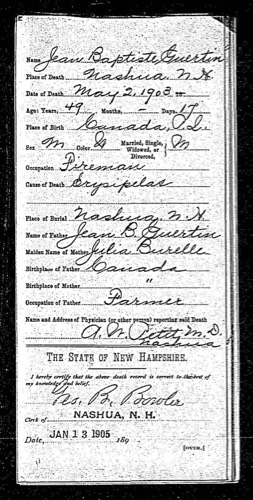 Name, Jean Baptiste Guertin
Place of Death Nashua, N.H.
Date of Death May 2, 1903
Age: Years, 49 Months, - Days, 17
Place of Birth Canada,
Sex M Color W Married, Single, Widowed, or Divorced, M
Occupation Fireman
Cause of Death Erysipelas
Place of Burial Nashua, N.H.
Name of Father Jean B. Guertin
Maiden Name of Mother Julia Burelle
Birthplace of Father Canada
Birthplace of Mother "
Occupation of Father Farmer
Name and Address of Physician (or other person) reporting said Death
A. W. Petit, M.D.
Nashua
THE STATE OF NEW HAMPSHIRE.
I hereby certify that the above death record is correct to the best of
my knowledge and belief.
Geo. B. Bowler
Clerk of NASHUA, N. H.
Date, JAN 13 1905 189
[OVER.]